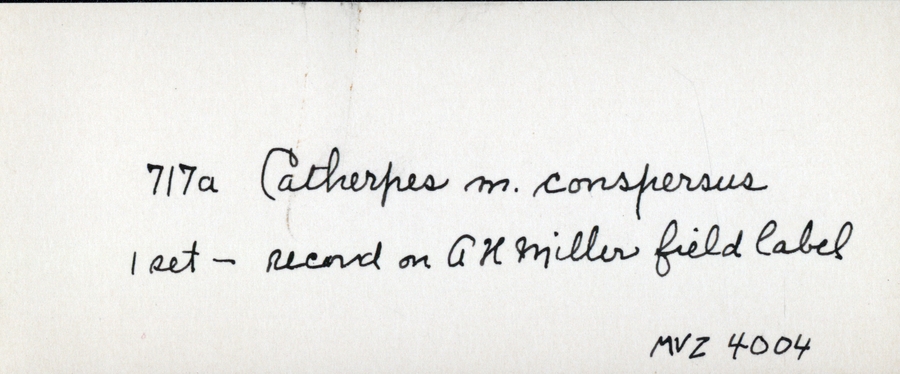 717a Catherpes m. conspersus
1 set – record on A H Miller field label
MVZ 4004